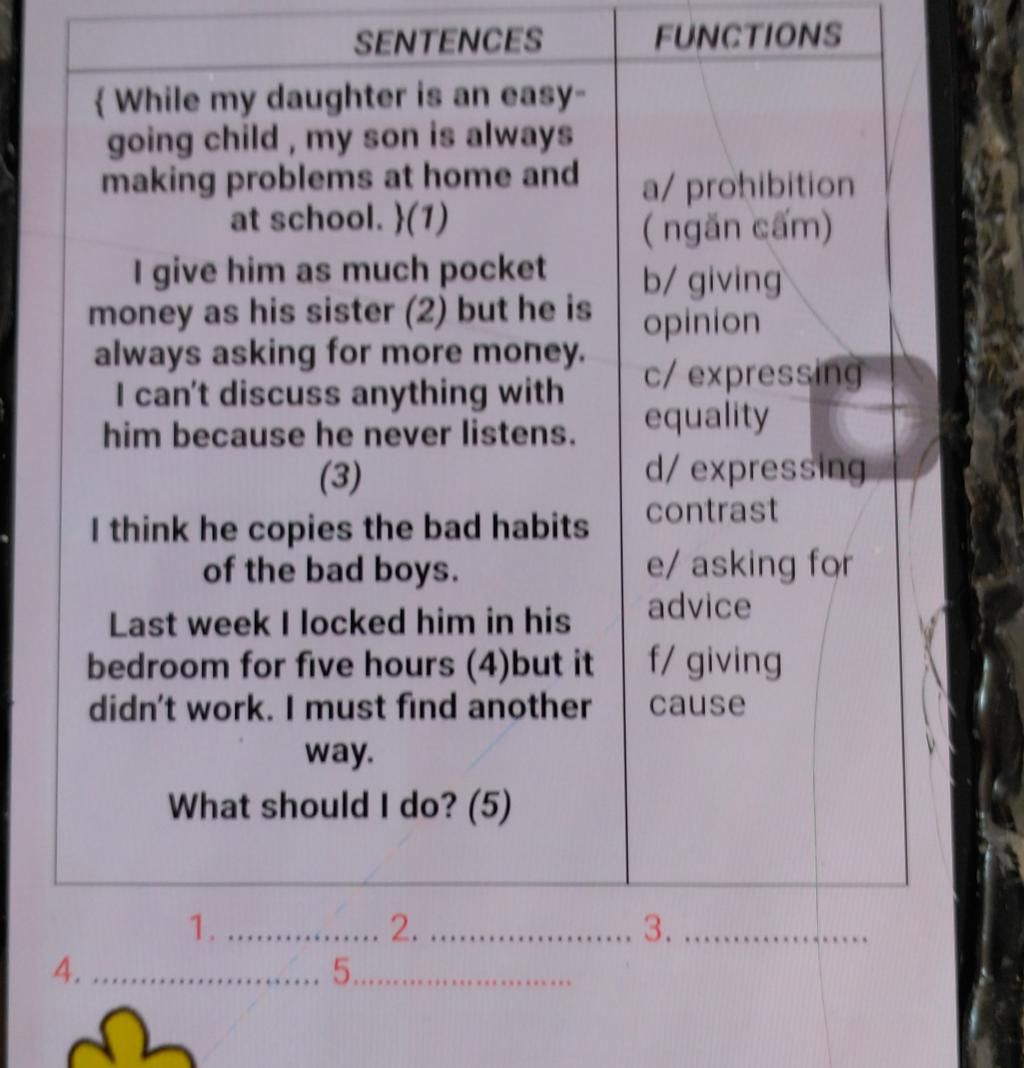 SENTENCES
FUNCTIONS
{ While my daughter is an easy-
going child , my son is always
making problems at home and
at school. }(1)
I give him as much pocket
money as his sister (2) but he is
always asking for more money.
I can't discuss anything with
him because he never listens.
(3)
I think he copies the bad habits
of the bad boys.
Last week I locked him in his
bedroom for five hours (4)but it
didn't work. I must find another
way.
What should I do? (5)
a/ prohibition
( ngăn cấm)
b/ giving
opinion
c/ expressing
equality
d/ expressing
contrast
e/ asking for
advice
f/ giving
cause
1. ................ 2. ..................... 3. ...................
4. ........................ 5.......................